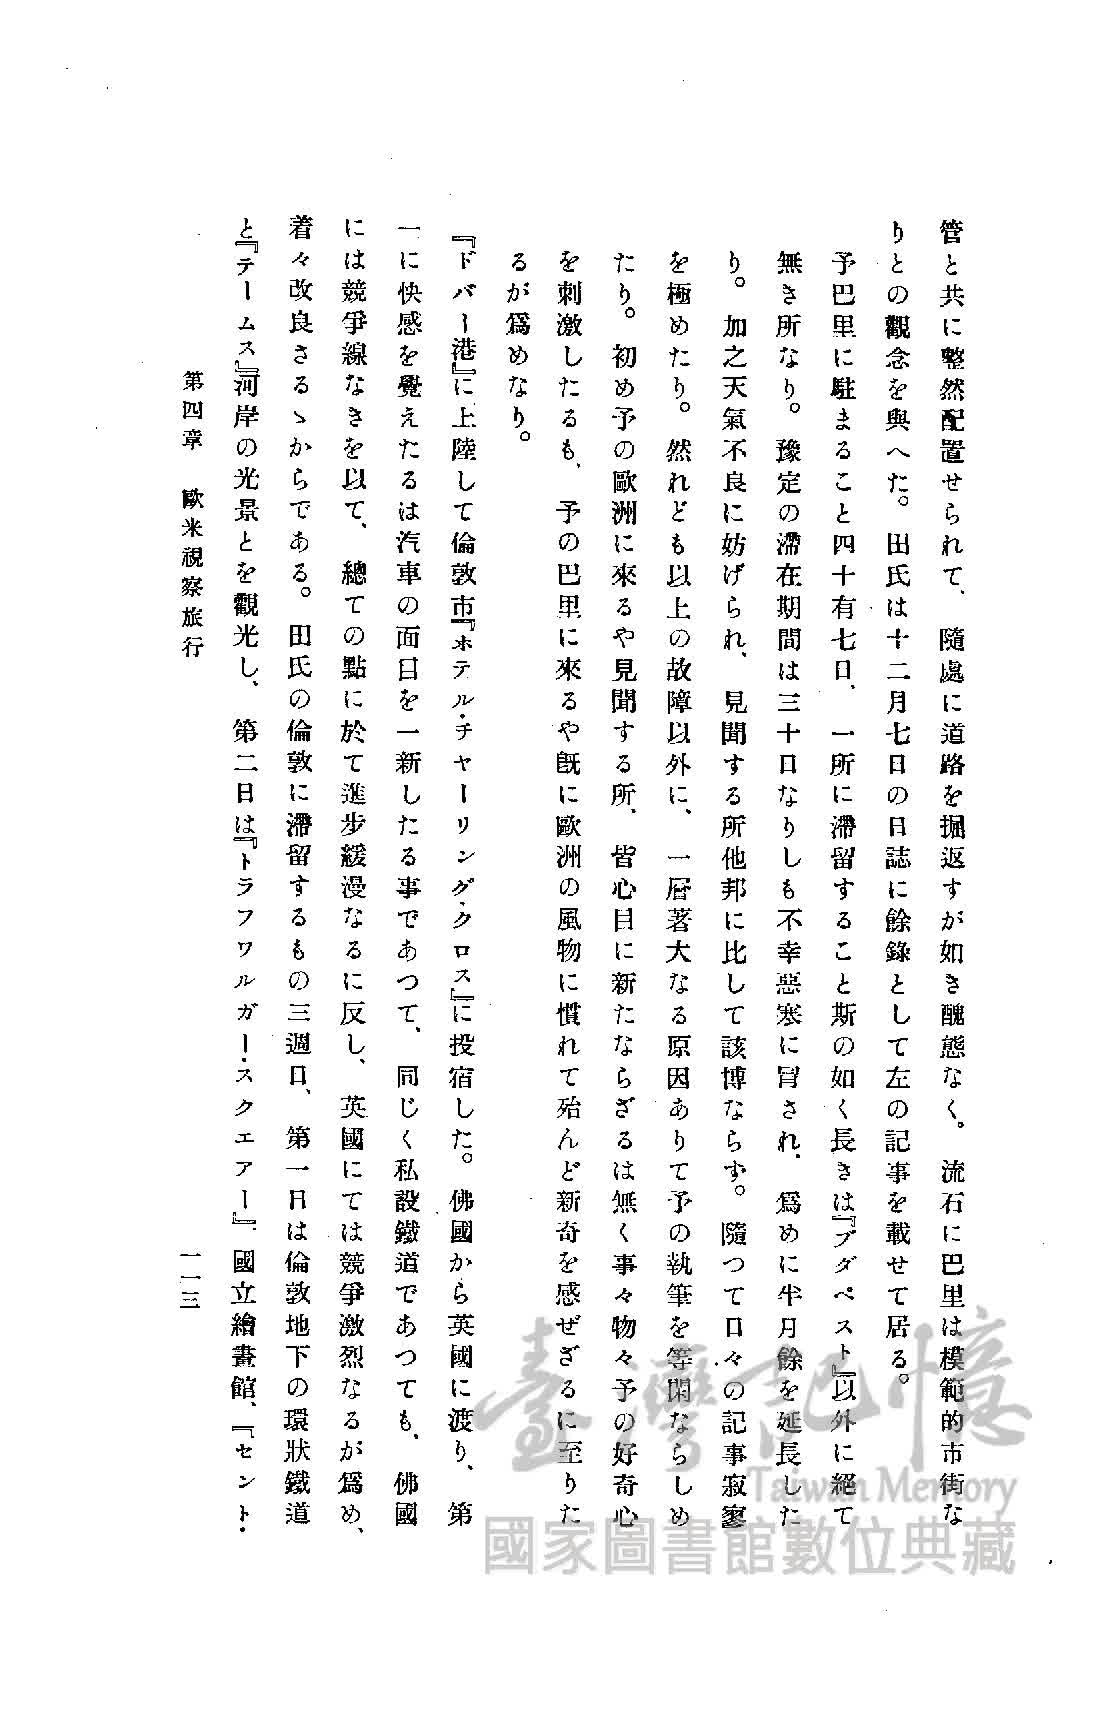 管と共に整然配置せられて、隨處に道路を掘返すが如き醜態なく。流石に巴里は模範的市街な
りとの觀念を與へた。田氏は十二月七日の日誌に餘錄として左の記事を載せて居る。
予巴里に駐まること四十有七日、一所に滯留すること斯の如く長きは『ブダペスト』以外に絕て
無き所なり。豫定の滯在期間は三十日なりしも不幸惡寒に冒され、爲めに半月餘を延長した
り。加之天氣不良に妨げられ、見聞する所他邦に比して該博ならず。隨つて日々の記事寂寥
を極めたり。然れども以上の故障以外に、一層著大なる原因ありて予の執筆を等閑ならしめ
たり。初め予の歐洲に來るや見聞する所、皆心目に新たならざるは無く事々物々予の好奇心
を刺激したるも、予の巴里に來るや旣に歐洲の風物に慣れて殆んど新奇を感ぜざるに至りた
るが爲めなり。
『ドバー港』に上陸して倫敦市『ホテル・チャーリング・クロス』に投宿した。佛國から英國に渡り、第
一に快感を覺えたるは汽車の面目を一新したる事であつて、同じく私設鐵道であつても、佛國
には競爭線なきを以て、總ての點に於て進步緩漫なるに反し、英國にては競爭激烈なるが爲め、
着々改良さるゝからである。田氏の倫敦に滯留するもの三週日、第一日は倫敦地下の環狀鐵道
と『テームス』河岸の光景とを觀光し、第二日は『トラフワルガー・スクエアー』、國立繪畫館、『セント・
第四章 歐米視察旅行
一一三
臺灣記憶
Taiwan Memory
國家圖書館數位典藏